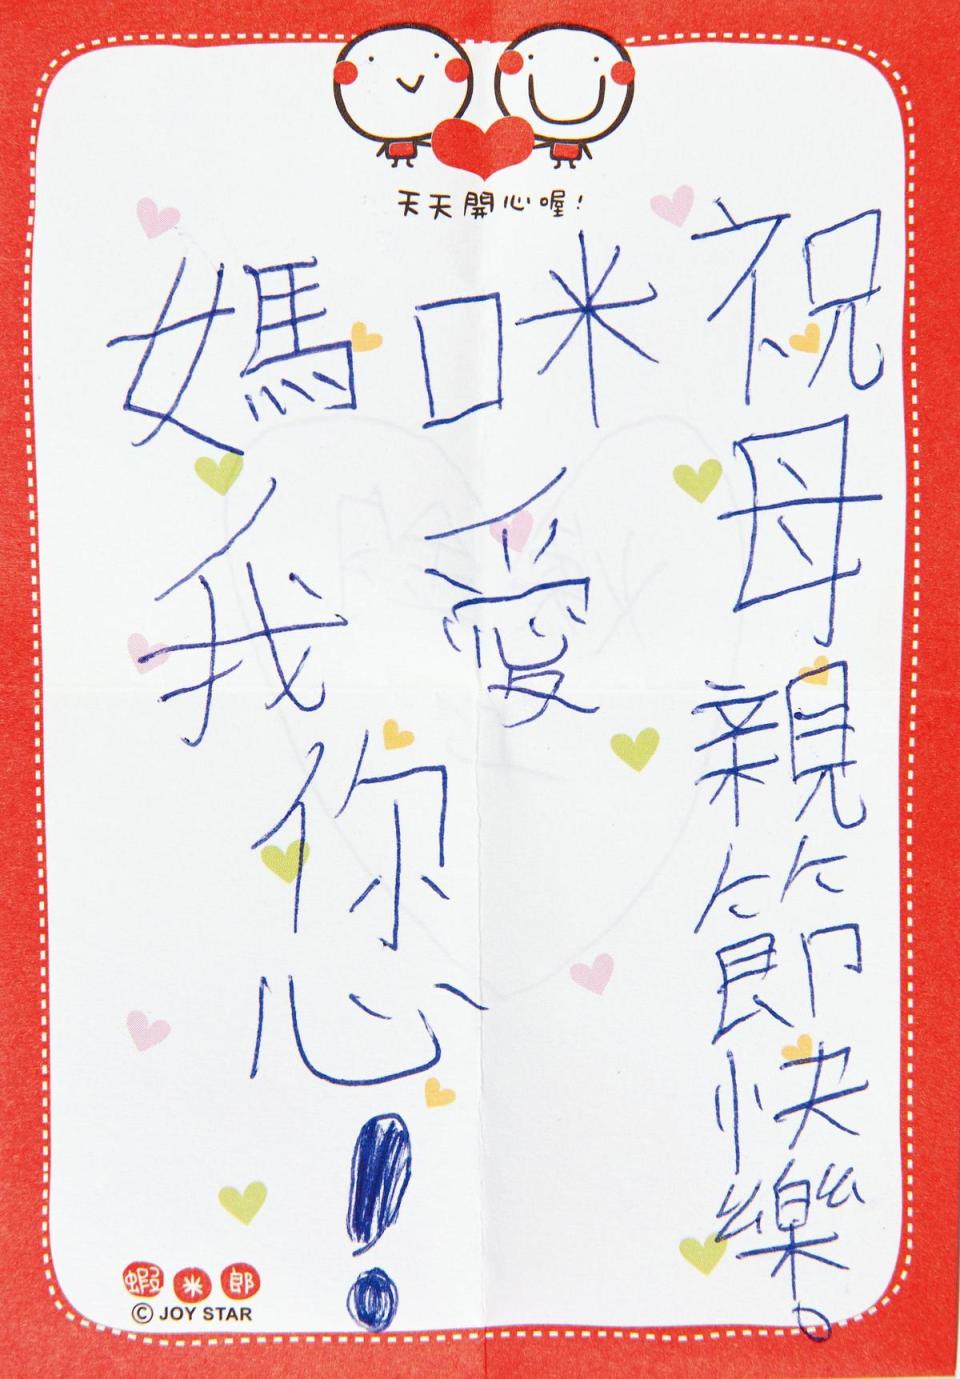 天天開心喔!
媽咪
我愛
您!
祝母親節快樂。
蝦米郎
© JOY STAR